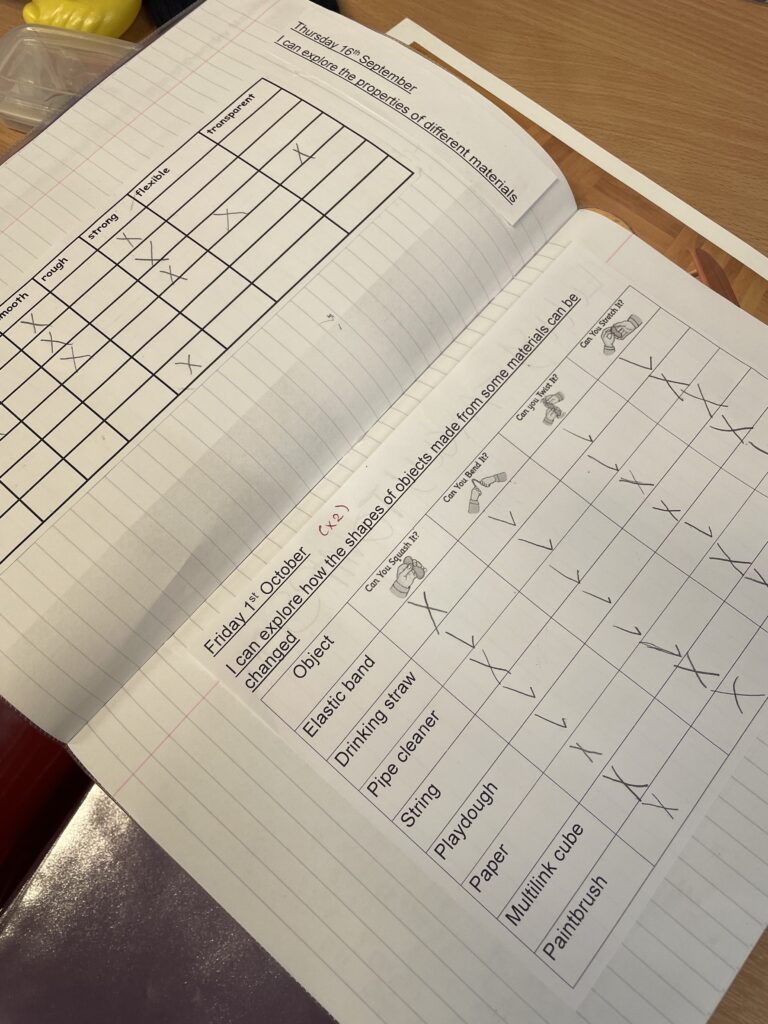 Thursday 16th September
I can explore the properties of different materials
rough
strong
flexible
transparent
Friday 1st October
(x2)
I can explore how the shapes of objects made from some materials can be
changed
Object
Can You Squash It?
Can You Bend It?
Can you Twist It?
Can You Stretch It?
Elastic band
Drinking straw
Pipe cleaner
String
Playdough
Paper
Multilink cube
Paintbrush